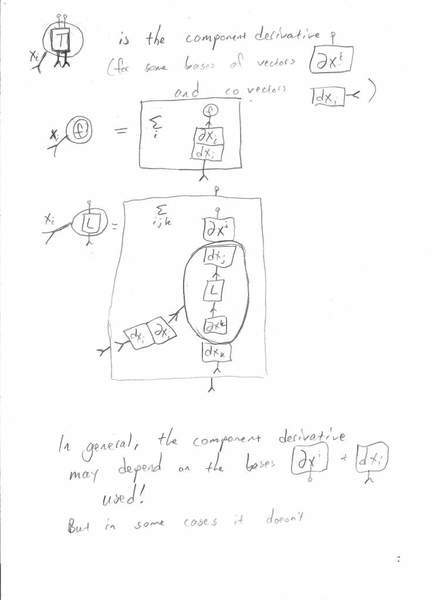 x_i T is the component derivative
(for some bases of vectors ∂x^i
and co vectors dx_i )
x_i f = Σ i f ∂x_i dx_i
x_i L = Σ i,j,k ∂x^i
dx_j
L
dx_i ∂x_i ∂x^k
dx_k
In general, the component derivative
may depend on the bases ∂x^i + dx_i
used!
But in some cases it doesn't